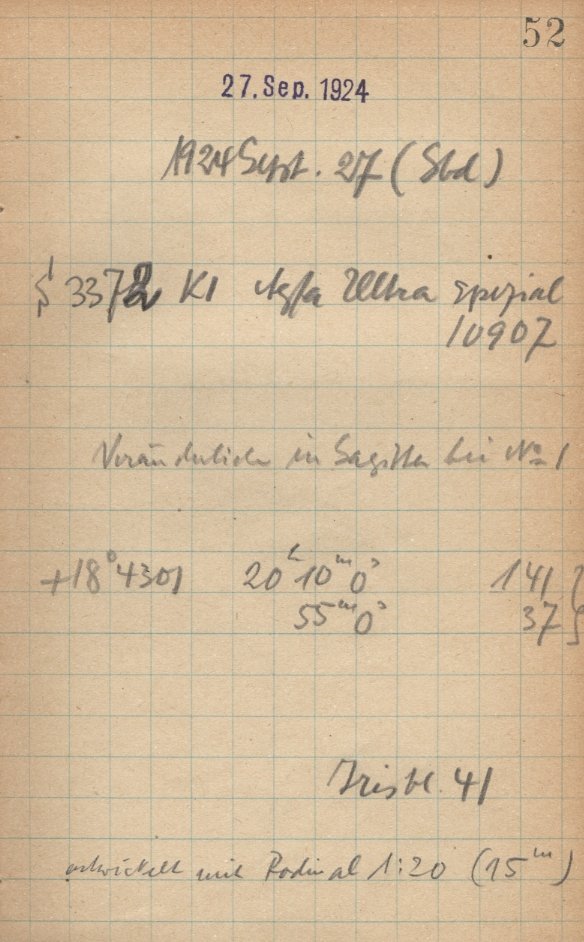 52
27. Sep. 1924
1924 Sept. 27 (Sbd)
S 3372 K1 Agfa Ultra Spezial
10907
Veränderliche in Sagitta bei No 1
+18° 4301 20ʰ 10ᵐ 0ˢ 141
55ᵐ 0ˢ 37
Irisbl. 41
entwickelt mit Rodinal 1:20 (15ᵐ)